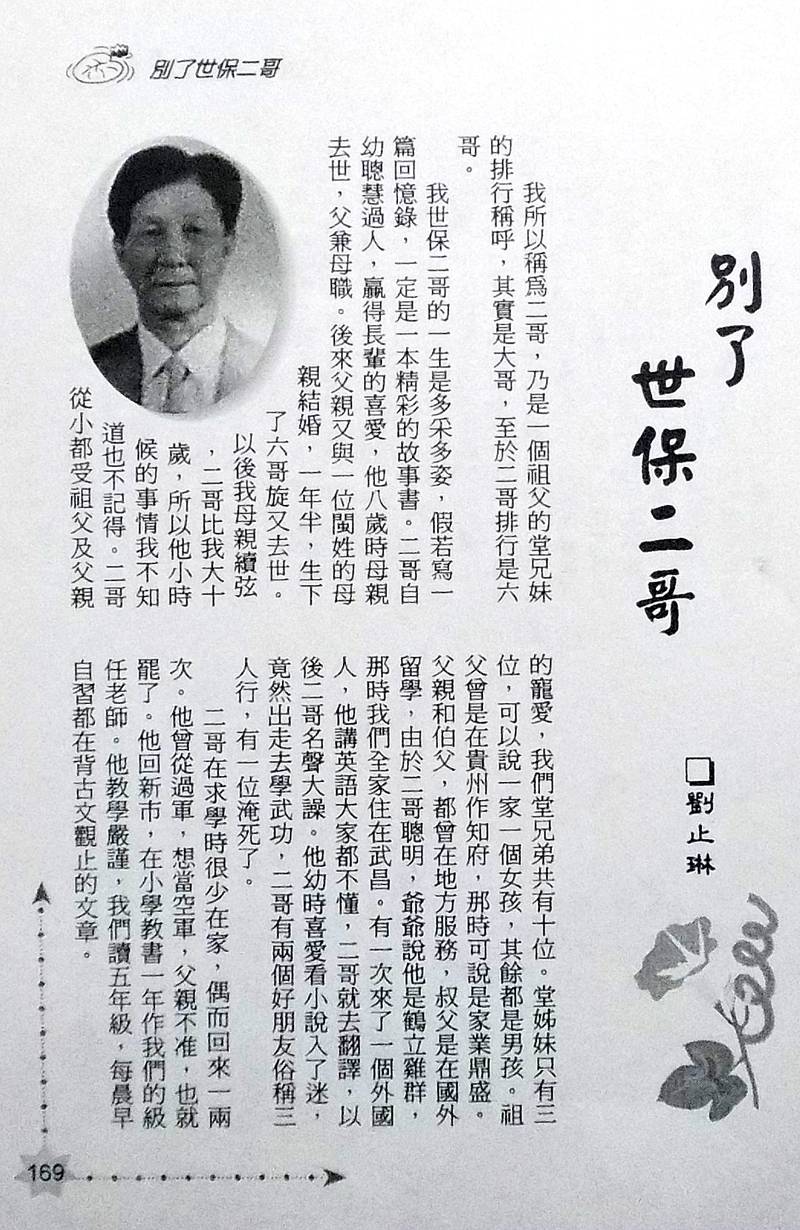 別了世保二哥
別了
世保二哥
□劉止琳
我所以稱為二哥，乃是一個祖父的堂兄妹
的排行稱呼，其實是大哥，至於二哥排行是六
哥。
我世保二哥的一生是多采多姿，假若寫一
篇回憶錄，一定是一本精彩的故事書。二哥自
幼聰慧過人，贏得長輩的喜愛，他八歲時母親
去世，父兼母職。後來父親又與一位閩姓的母
親結婚，一年半，生下
了六哥旋又去世。
以後我母親續弦
，二哥比我大十
歲，所以他小時
候的事情我不知
道也不記得。二哥
從小都受祖父及父親
的寵愛，我們堂兄弟共有十位。堂姊妹只有三
位，可以說一家一個女孩，其餘都是男孩。祖
父曾是在貴州作知府，那時可說是家業鼎盛。
父親和伯父，都曾在地方服務，叔父是在國外
留學，由於二哥聰明，爺爺說他是鶴立雞群，
那時我們全家住在武昌。有一次來了一個外國
人，他講英語大家都不懂，二哥就去翻譯，以
後二哥名聲大譟。他幼時喜愛看小說入了迷，
竟然出走去學武功，二哥有兩個好朋友俗稱三
人行，有一位淹死了。
二哥在求學時很少在家，偶而回來一兩
次。他曾從過軍，想當空軍，父親不准，也就
罷了。他回新市，在小學教書一年作我們的級
任老師。他教學嚴謹，我們讀五年級，每晨早
自習都在背古文觀止的文章。
169